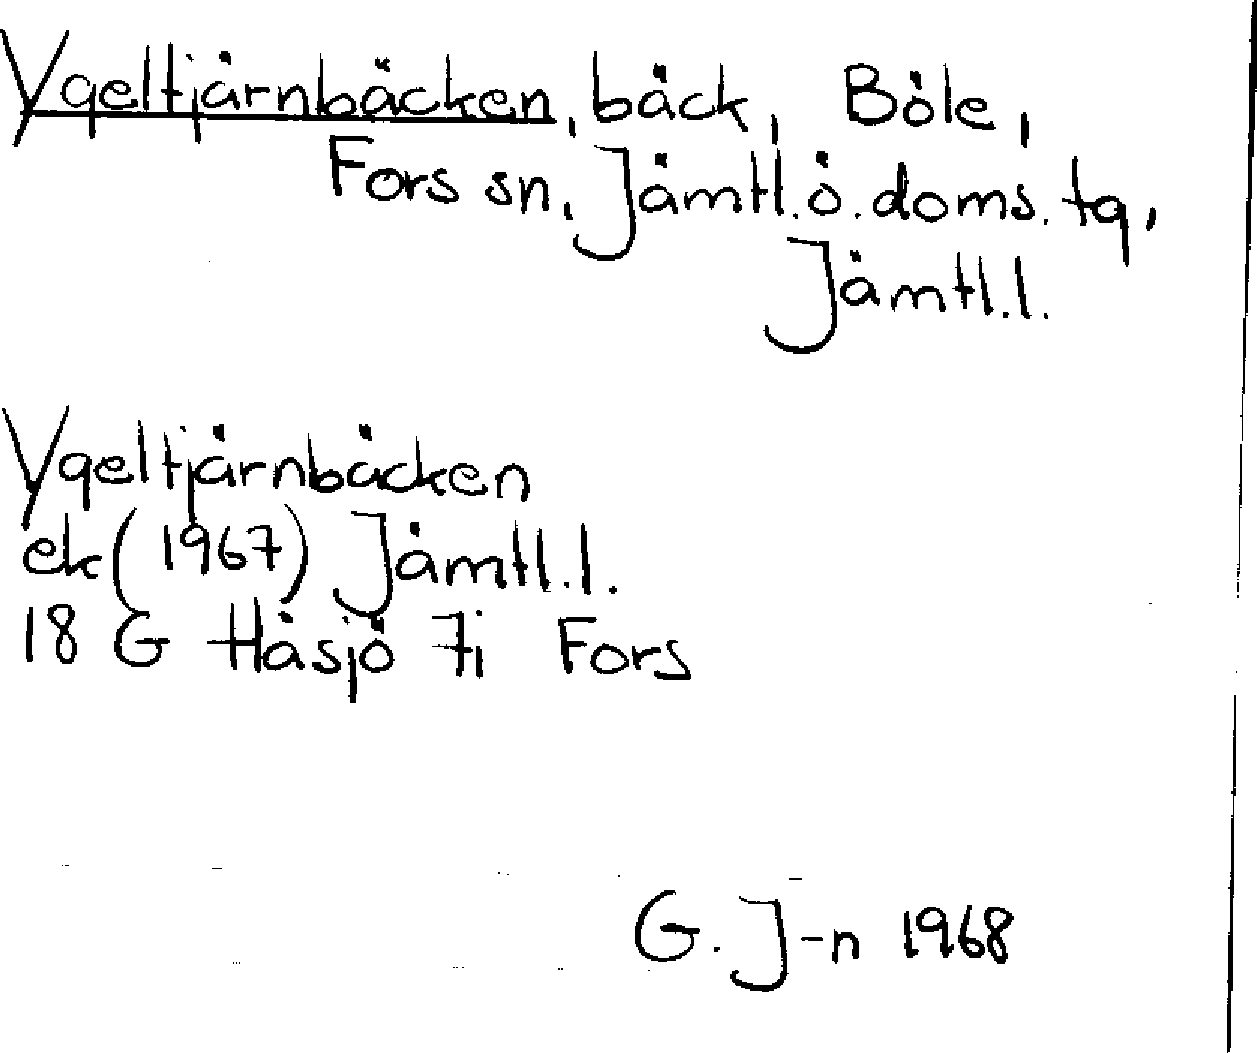 Ygeltjärnbäcken, bäck, Böle,
Fors sn, Jämtl.ö.doms.tg,
Jämtl.l.
Ygeltjärnbäcken
ek (1967) Jämtl.l.
18 G Håsjö 7i Fors
G. J-n 1968